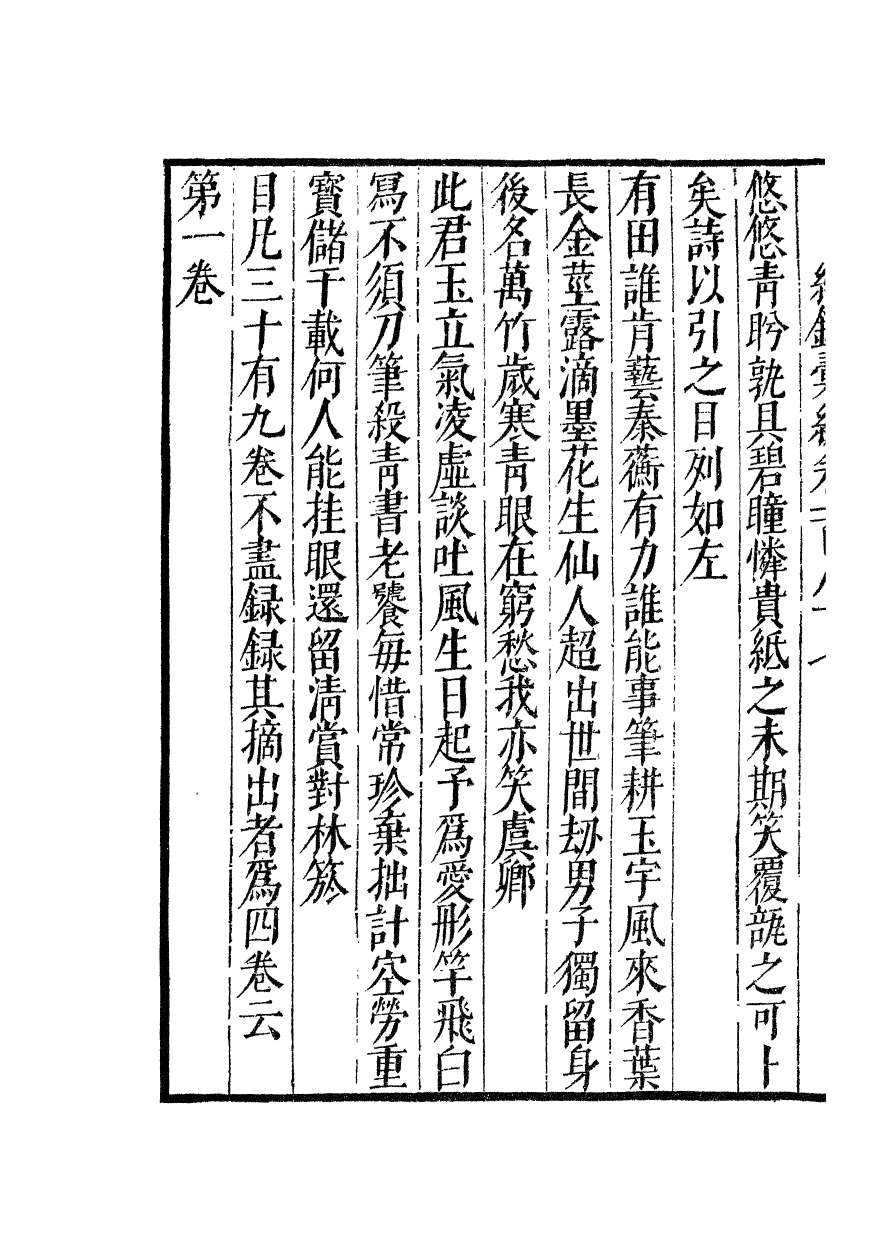 悠悠青盻孰具碧瞳憐貴紙之未期笑覆瓿之可卜
矣詩以引之目列如左
有田誰肯藝秦蘅有力誰能事筆耕玉宇風來香葉
長金莖露滴墨花生仙人超出世間劫男子獨留身
後名萬竹歲寒青眼在窮愁我亦笑虞卿
此君玉立氣凌虛談吐風生日起予爲愛形竿飛白
寫不須刀筆殺青書老饕每惜常珍棄拙計空勞重
寶儲千載何人能挂眼還留清賞對林於
目凡三十有九卷不盡録録其摘出者爲四卷云
第一卷